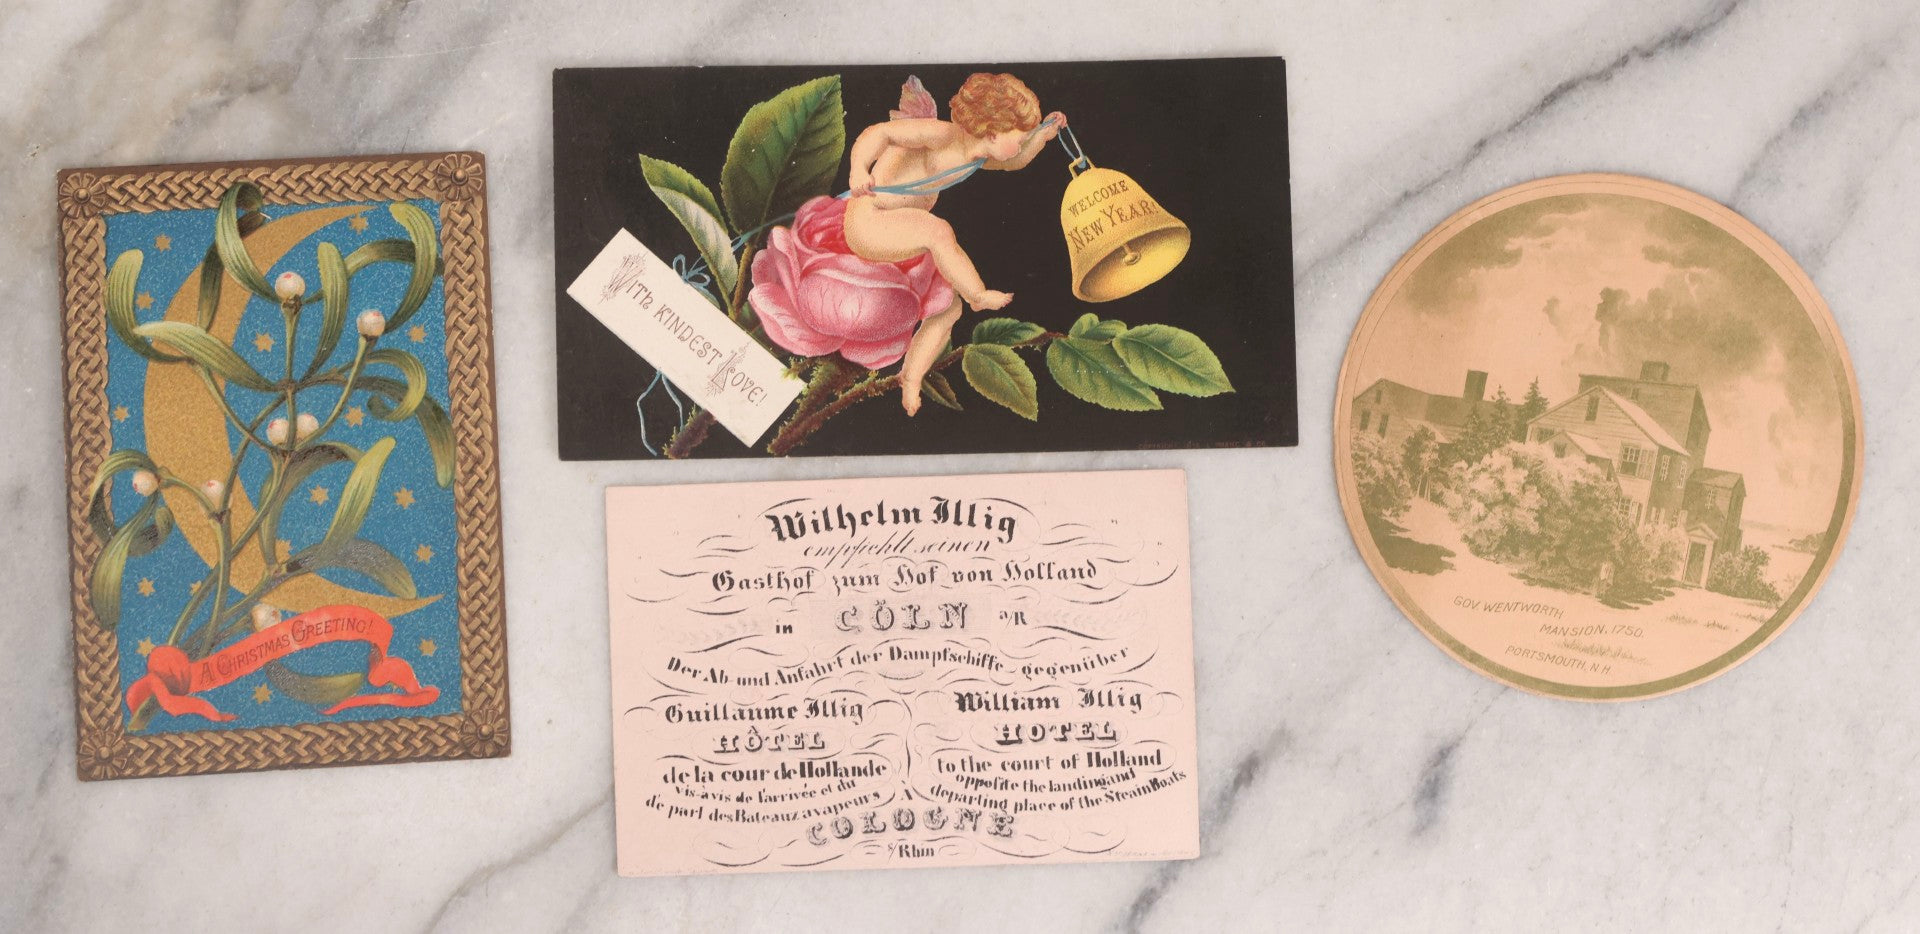 A CHRISTMAS GREETING!
WITH KINDEST LOVE!
WELCOME
NEW YEAR!
Wilhelm Illig
empfiehlt seinen
Gasthof zum Hof von Holland
in CÖLN a/R
Der Ab- und Anfahrt der Dampfschiffe gegenüber
Guillaume Illig
HÔTEL
de la cour de Hollande
vis-à-vis de l'arrivée et du
dé part des Bateaux a vapeurs
William Illig
HOTEL
to the court of Holland
opposite the landing and
departing place of the Steam Boats
À
COLOGNE
s/Rhin
GOV. WENTWORTH
MANSION, 1750.
PORTSMOUTH, N.H.